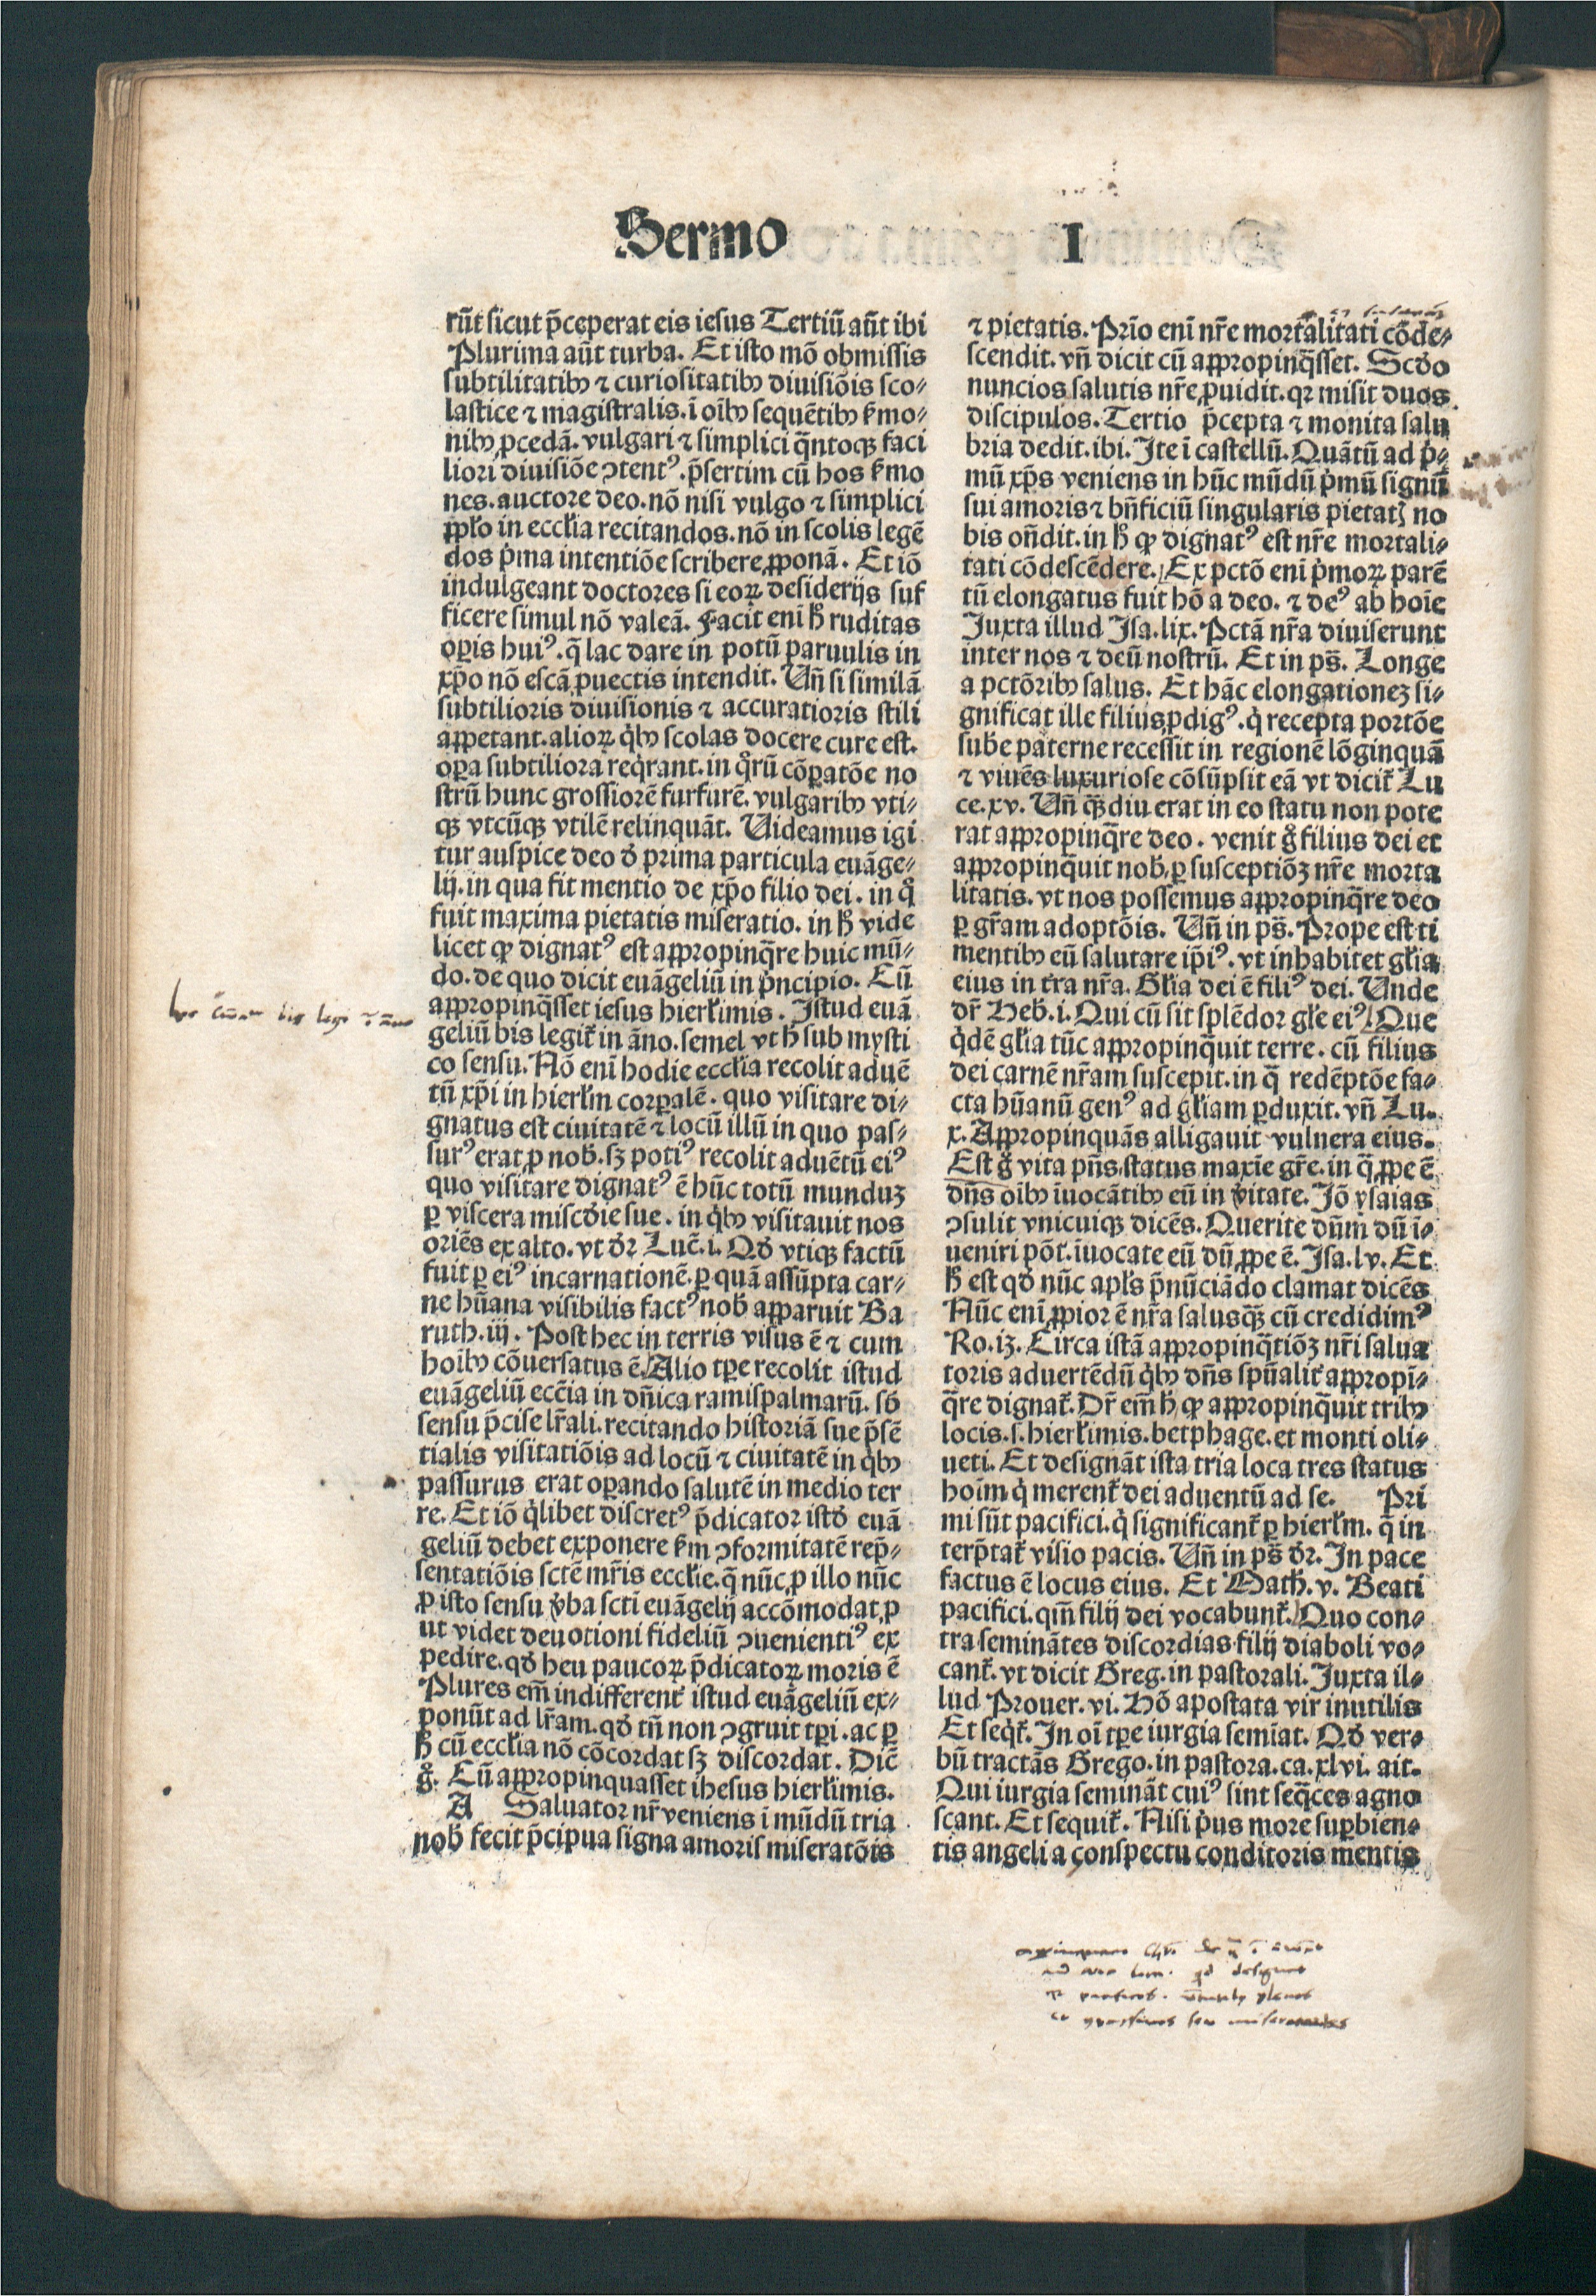 Sermo I
rūt sicut p̄ceperat eis iesus Tertiū aūt ibi
Plurima aūt turba. Et isto mō obmissis
subtilitatibꝫ ⁊ curiositatibꝫ diuisiōis sco⸗
lastice ⁊ magistralis. ī oībꝫ sequētibꝫ ẜmo⸗
nibꝫ ꝓcedā. vulgari ⁊ simplici q̄ntoqꝫ faci
liori diuisiōe ꝯtentꝰ. p̄sertim cū hos ẜmo
nes. auctore deo. nō nisi vulgo ⁊ simplici
ppl'o in eccl'ia recitandos. nō in scolis legē
dos p̍ma intentiōe scribere ꝓponā. Et iō
indulgeant doctores si eoꝝ desiderijs suf
ficere simul nō valeā. Facit eni hͦ ruditas
oꝑis huiꝰ. q̄ lac dare in potū paruulis in
xp̄o nō escā ꝓuectis intendit. Vn̄ si similā
subtilioris diuisionis ⁊ accuratioris stili
appetant. alioꝝ q̍bꝫ scolas docere cure est.
oꝑa subtiliora req̍rant. in qͦrū cōꝑatōe no
strū hunc grossiorē furfurē. vulgaribꝫ vti⸗
qꝫ vtcūqꝫ vtilē relinquāt. Uideamus igi
tur auspice deo đ prima particula euāge⸗
lij. in qua fit mentio de xp̄o filio dei. in qͦ
fuit maxima pietatis miseratio. in hͦ vide
licet ꝙ dignatꝰ est appropinq̄re huic mū⸗
do. de quo dicit euāgeliū in p̍ncipio. Cū
appropinq̄sset iesus hierl'imis. Istud euā
geliū bis legit᷑ in āno. semel vt hͨ sub mysti
co sensu. Nō eni hodie eccl'ia recolit aduē
tū xp̄i in hierl'm corꝑalē. quo visitare di⸗
gnatus est ciuitatē ⁊ locū illū in quo pas⸗
surꝰ erat ꝓ nob̄. sꝫ potiꝰ recolit aduētū eiꝰ
quo visitare dignatꝰ ē hūc totū munduꝫ
ꝑ viscera miscđie sue. in q̍bꝫ visitauit nos
oriēs ex alto. vt đr Luc̄. i. Qđ vtiqꝫ factū
fuit ꝑ eiꝰ incarnationē. ꝑ quā assūpta car⸗
ne hūana visibilis factꝰ nob̄ apparuit Ba
ruth. iij. Post hec in terris visus ē ⁊ cum
hoībꝫ cōuersatus ē. Alio tꝑe recolit istud
euāgeliū ecc̄ia in dn̄ica ramispalmarū. sb̄
sensu p̄cise lr̄ali. recitando historiā sue p̄sē
tialis visitatiōis ad locū ⁊ ciuitatē in q̍bꝫ
passurus erat oꝑando salutē in medio ter
re. Et iō q̍libet discretꝰ p̄dicator istđ euā
geliū debet exponere ẜm ꝯformitatē rep̄⸗
sentatiōis sctē mr̄is eccl'ie. q̄ nūc ꝓ illo nūc
ꝓ isto sensu v̍ba scti euāgelij accōmodat. ꝓ
ut videt deuotioni fideliū ꝯuenientiꝰ ex
pedire. qđ heu paucoꝝ p̄dicatoꝝ moris ē
Plures em̄ indifferent᷑ istud euāgeliū ex⸗
ponūt ad lr̄am. qđ tn̄ non ꝯgruit tꝑi. ac ꝑ
hͦ cū eccl'ia nō cōcordat sꝫ discordat. Dic̄
gͦ. Cū appropinquasset ihesus hierl'imis.
A Saluator nr̄ veniens ī mūdū tria
nob̄ fecit p̄cipua signa amoris miseratōis
⁊ pietatis. Prīo eni nr̄e mortalitati cōde⸗
scendit. vn̄ dicit cū appropinq̄sset. Scđo
nuncios salutis nr̄e ꝓuidit. qꝛ misit duos
discipulos. Tertio p̄cepta ⁊ monita salu
bria dedit. ibi. Ite ī castellū. Quātū ad p̍⸗
mū xp̄s veniens in hūc mūdū p̍mū signū
sui amoris ⁊ bn̄ficiū singularis pietatꝭ no
bis on̄dit. in hͦ ꝙ dignatꝰ est nr̄e mortali⸗
tati cōdescēdere. Ex pctō eni p̍moꝝ parē
tū elongatus fuit hō a deo. ⁊ deꝰ ab hoīe
Iuxta illud Isa. lix. Pctā nr̄a diuiserunt
inter nos ⁊ deū nostrū. Et in ps̄. Longe
a pctōribꝫ salus. Et hāc elongationeꝫ si⸗
gnificat ille filius ꝓdigꝰ. q̍ recepta portōe
sube paterne recessit in regionē lōginquā
⁊ viuēs luxuriose cōsūpsit eā vt dicit᷑ Lu
ce. xv. Un̄ qꝫ̄diu erat in eo statu non pote
rat appropinq̄re deo. venit gͦ filius dei et
appropinq̄uit nob̄. ꝑ susceptiōꝫ nr̄e morta
litatis. vt nos possemus appropinq̄re deo
ꝑ gr̄am adoptōis. Un̄ in ps̄. Prope est ti
mentibꝫ eū salutare ip̄iꝰ. vt inhabitet gl'ia
eius in tr̄a nr̄a. Gl'ia dei ē filiꝰ dei. Unde
dr̄ Heb̄. i. Qui cū sit splēdor gl'e eiꝰ. Que
q̍dē gl'ia tūc appropinquit terre. cū filius
dei carnē nr̄am suscepit. in q̄ redēptōe fa⸗
cta hūanū genꝰ ad gl'iam ꝑduxit. vn̄ Lu.
x. Appropinquās alligauit vulnera eius.
Est gͦ vita pn̄s. status maxīe gr̄e. in q̄ ꝓpe ē
dn̄s oībꝫ īuocātibꝫ eū in v̍itate. Iō ysaias
ꝯsulit vnicuiqꝫ dicēs. Querite dn̄m dū ī⸗
ueniri pōt. īuocate eū dū ꝓpe ē. Isa. lv. Et
hͦ est qđ nūc apl's p̄nūciādo clamat dicēs
Nūc eni ꝓpior ē nr̄a salus qꝫ̄ cū credidimꝰ
Ro. iꝫ. Circa istā appropinq̄tiōꝫ nr̄i salua
toris aduertēdū q̍bꝫ dn̄s spūalit᷑ appropi⸗
q̄re dignat᷑. Dr̄ em̄ hͨ ꝙ appropinq̄uit tribꝫ
locis. s. hierl'imis. betphage. et monti oli⸗
ueti. Et designāt ista tria loca tres status
hoim q̍ merent᷑ dei aduentū ad se. Pri
mi sūt pacifici. q̍ significant᷑ ꝑ hierl'm. q̄ in
terp̄tat᷑ visio pacis. Un̄ in ps̄ đr. In pace
factus ē locus eius. Et Math̄. v. Beati
pacifici. qm̄ filij dei vocabunt᷑. Quo con⸗
tra seminātes discordias filij diaboli vo⸗
cant᷑. vt dicit Greg. in pastorali. Iuxta il⸗
lud Prouer. vi. Hō apostata vir inutilis
Et seq̍t᷑. In oī tꝑe iurgia semīat. Qđ ver⸗
bū tractās Grego. in pastora. ca. xlvi. ait.
Qui iurgia semināt cuiꝰ sint seq̄ces agno
scant. Et sequit᷑. Nisi p̍us more suꝑbien⸗
tis angeli a conspectu conditoris mentis